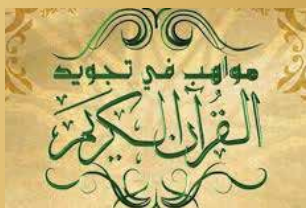 مواهب في تجويد
القرآن الكريم